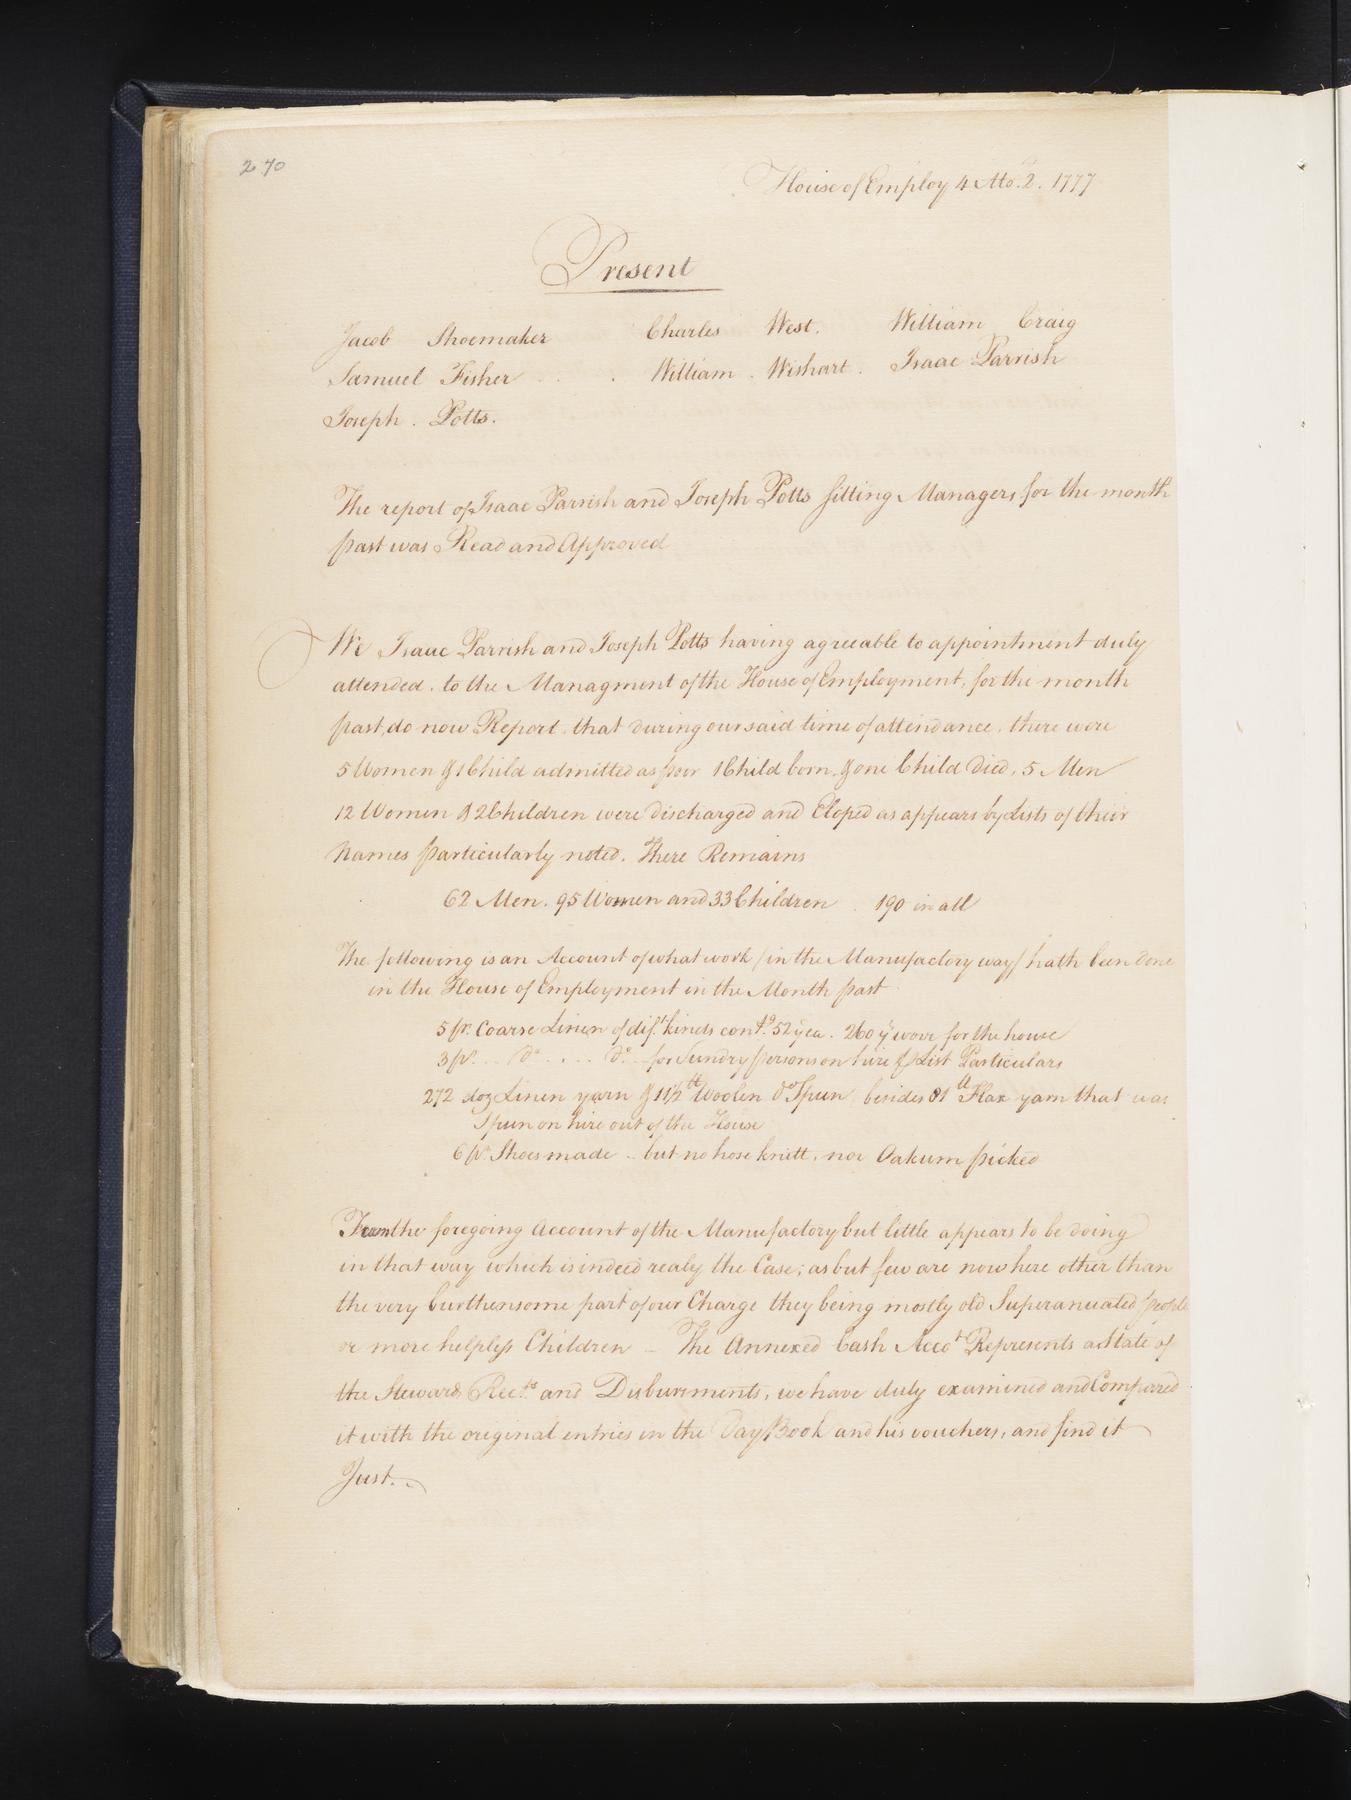 270
House of Employ 4 Mo. 2. 1777
Present
Jacob Shoemaker Charles West. William Craig
Samuel Fisher . . William . Wishart . Isaac Parrish
Joseph . Potts.
The report of Isaac Parrish and Joseph Potts Sitting Managers for the month
past was Read and Approved
We Isaac Parrish and Joseph Potts having agreeable to appointment duly
attended . to the Managment of the House of Employment, for the month
past, do now Report that during our said time of attendance, there were
5 Women & 1 Child admitted as poor 1 Child born & one Child Died, 5 Men
12 Women & 2 Children were discharged and Eloped as appears by Lists of their
Names particularly noted. There Remains
62 Men. 95 Women and 33 Children . 190 in all
The following is an Account of what work /in the Manufactory way/ hath been done
in the House of Employment in the Month past
5 ps. Coarse Linen of dift. kinds contg. 52 y ea. 260 yd wove for the house
3 ps. .. Do. . . . . Do. .. for Sundry persons on hire List Particulars
272 doz Linen yarn & 11½ lb Woolen do Spun besides 81 lb Flax yarn that was
Spun on hire out of the House
6 pr. Shoes made .. but no hose knitt, nor Oakum picked
From the foregoing Account of the Manufactory but little appears to be doing
in that way which is indeed realy the Case; as but few are now here other than
the very burthensome part of our Charge they being mostly old Superanuated people
or more helpless Children – The Annexed Cash Accot Represents a State of
the Steward Rects. and Disbursments, we have duly examined and Compared
it with the original entries in the Day Book and his vouchers, and find it
Just..